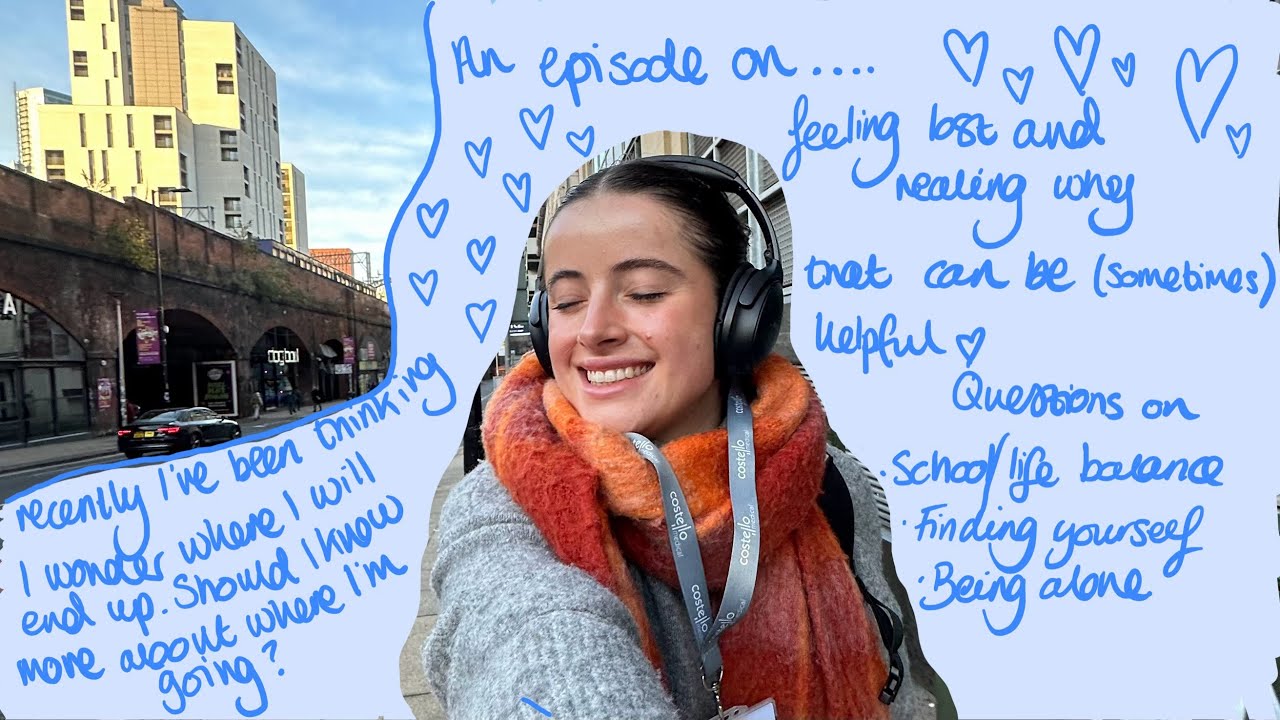 An episode on ....
feeling lost and
realing why
that can be (sometimes)
helpful
Questions on
· School/life balance
· Finding yourself
· Being alone
recently I've been thinking
I wonder where I will
end up. Should I know
more about where I'm
going?
costello
medical
costello
costello
medical
costello
A